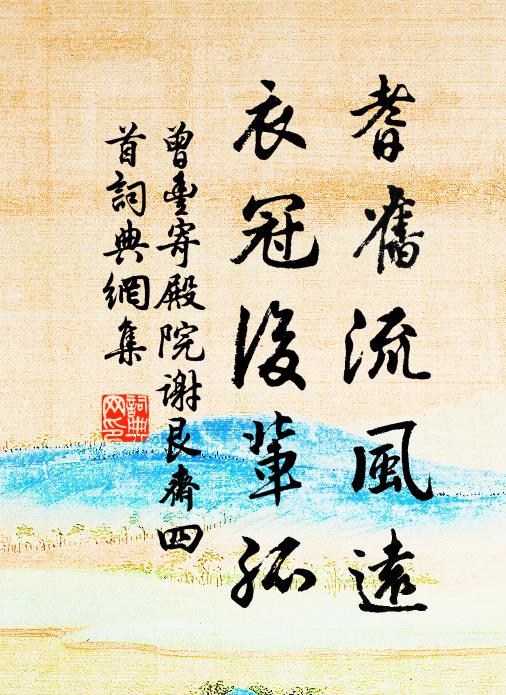 耆舊流風遠
衣冠後輩孤
曾豐寄殿院謝艮齋四
首詞典網集
詞典
网印